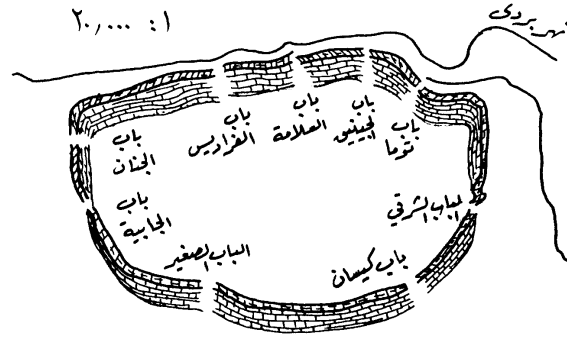 ١ : ٢٠,٠٠٠
نهر بردى
باب
الجنان
باب
الفراديس
باب
السلامة
باب
الجينيق
باب
توما
باب
الجابية
الباب الشرقي
الباب الصغير
باب كيسان